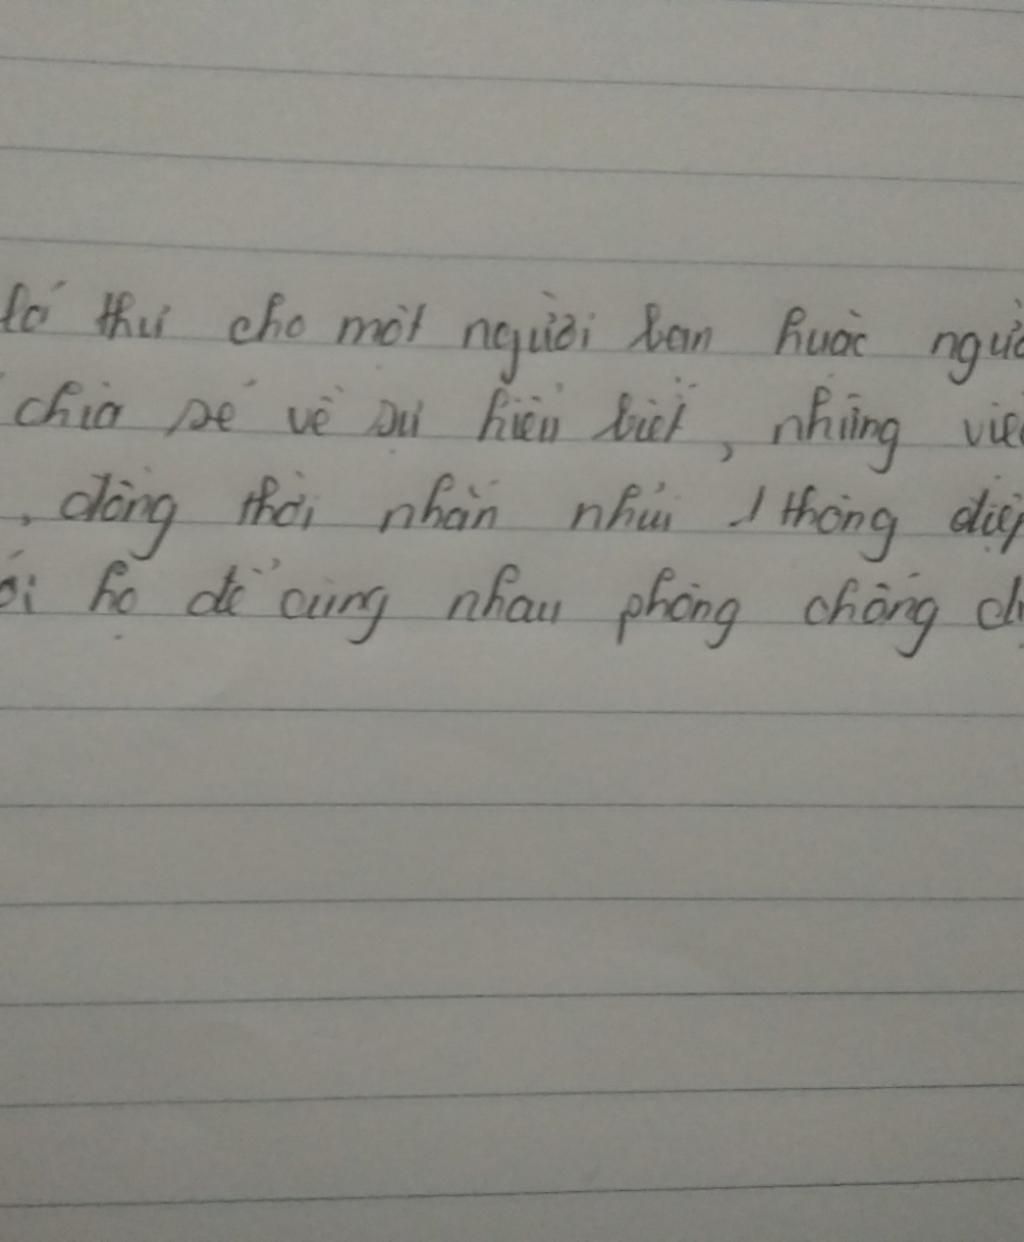 lá thư cho một người bạn hoặc ngườ
chia sẻ về sự hiểu biết, những việ
, đồng thời nhắn nhủi 1 thông điệp
ới họ để cùng nhau phòng chống dị